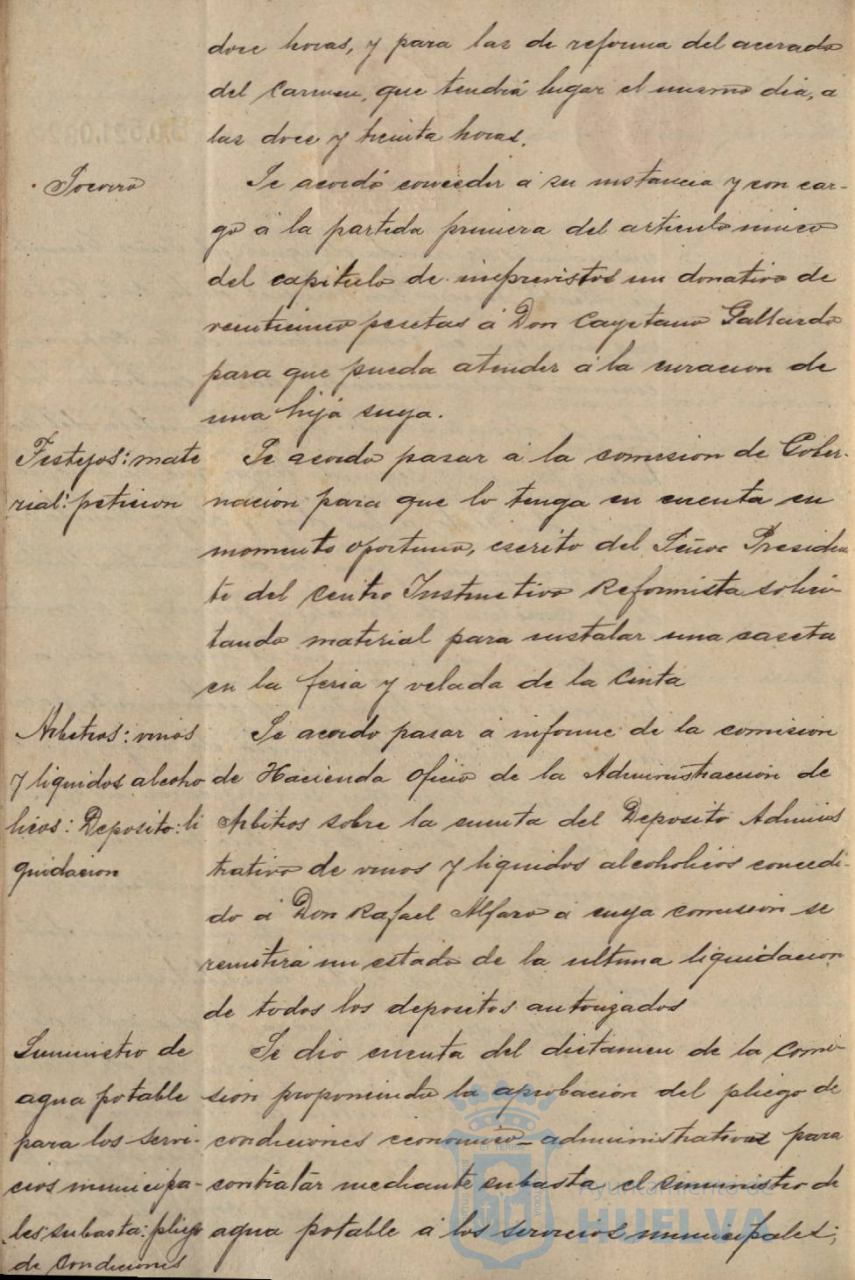 doce horas, y para las de reforma del acerado
del Carmen, que tendrá lugar el mismo dia, a
las doce y treinta horas.
Socorro
Se acordó conceder á su instancia y con car-
go á la partida primera del articulo unico
del capitulo de imprevistos un donativo de
veinticinco pesetas á Don Cayetano Gallardo
para que pueda atender á la curacion de
una hija suya.
Festejos: mate
rial: peticion
Se acordo pasar á la comision de Gober-
nación para que lo tenga en cuenta en
momento oportuno, escrito del Señor Presiden
te del Centro Instructivo Reformista solici-
tando material para instalar una caseta
en la feria y velada de la Cinta
Arbitros: vinos
y liquidos alcoho
licos: Deposito: li
quidacion
Se acordo pasar á informe de la comision
de Hacienda oficio de la Administraccion de
Arbitros sobre la cuenta del Deposito Adminis
trativo de vinos y liquidos alcoholicos concedi-
do á Don Rafael Alfaro á cuya comision se
remitirá un estado de la ultima liquidacion
de todos los depositos autorizados
Suministro de
agua potable
para los servi-
cios municipa-
les: subasta: pliego
de condiciones
Se dio cuenta del dictamen de la Comi-
sion proponiendo la aprobacion del pliego de
condiciones economico-administrativas para
contratar mediante subasta el suministro de
agua potable á los servicios municipales;
Ayuntamiento de
HUELVA